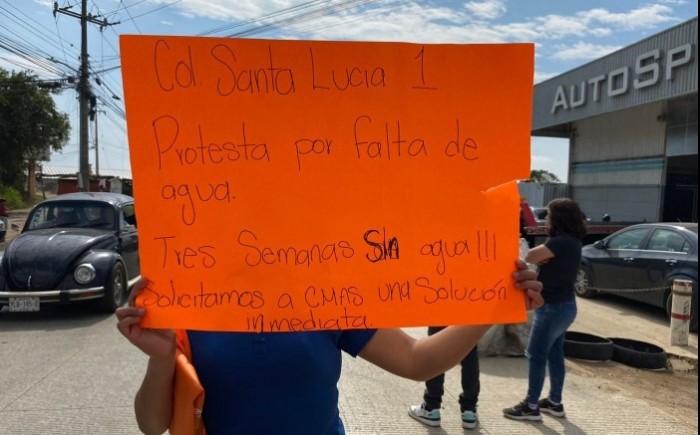 Col. Santa Lucia 1
AUTOSP
Protesta por falta de
agua.
Tres Semanas Sin agua!!!
Solicitamos a CMAS una Solución
inmediata